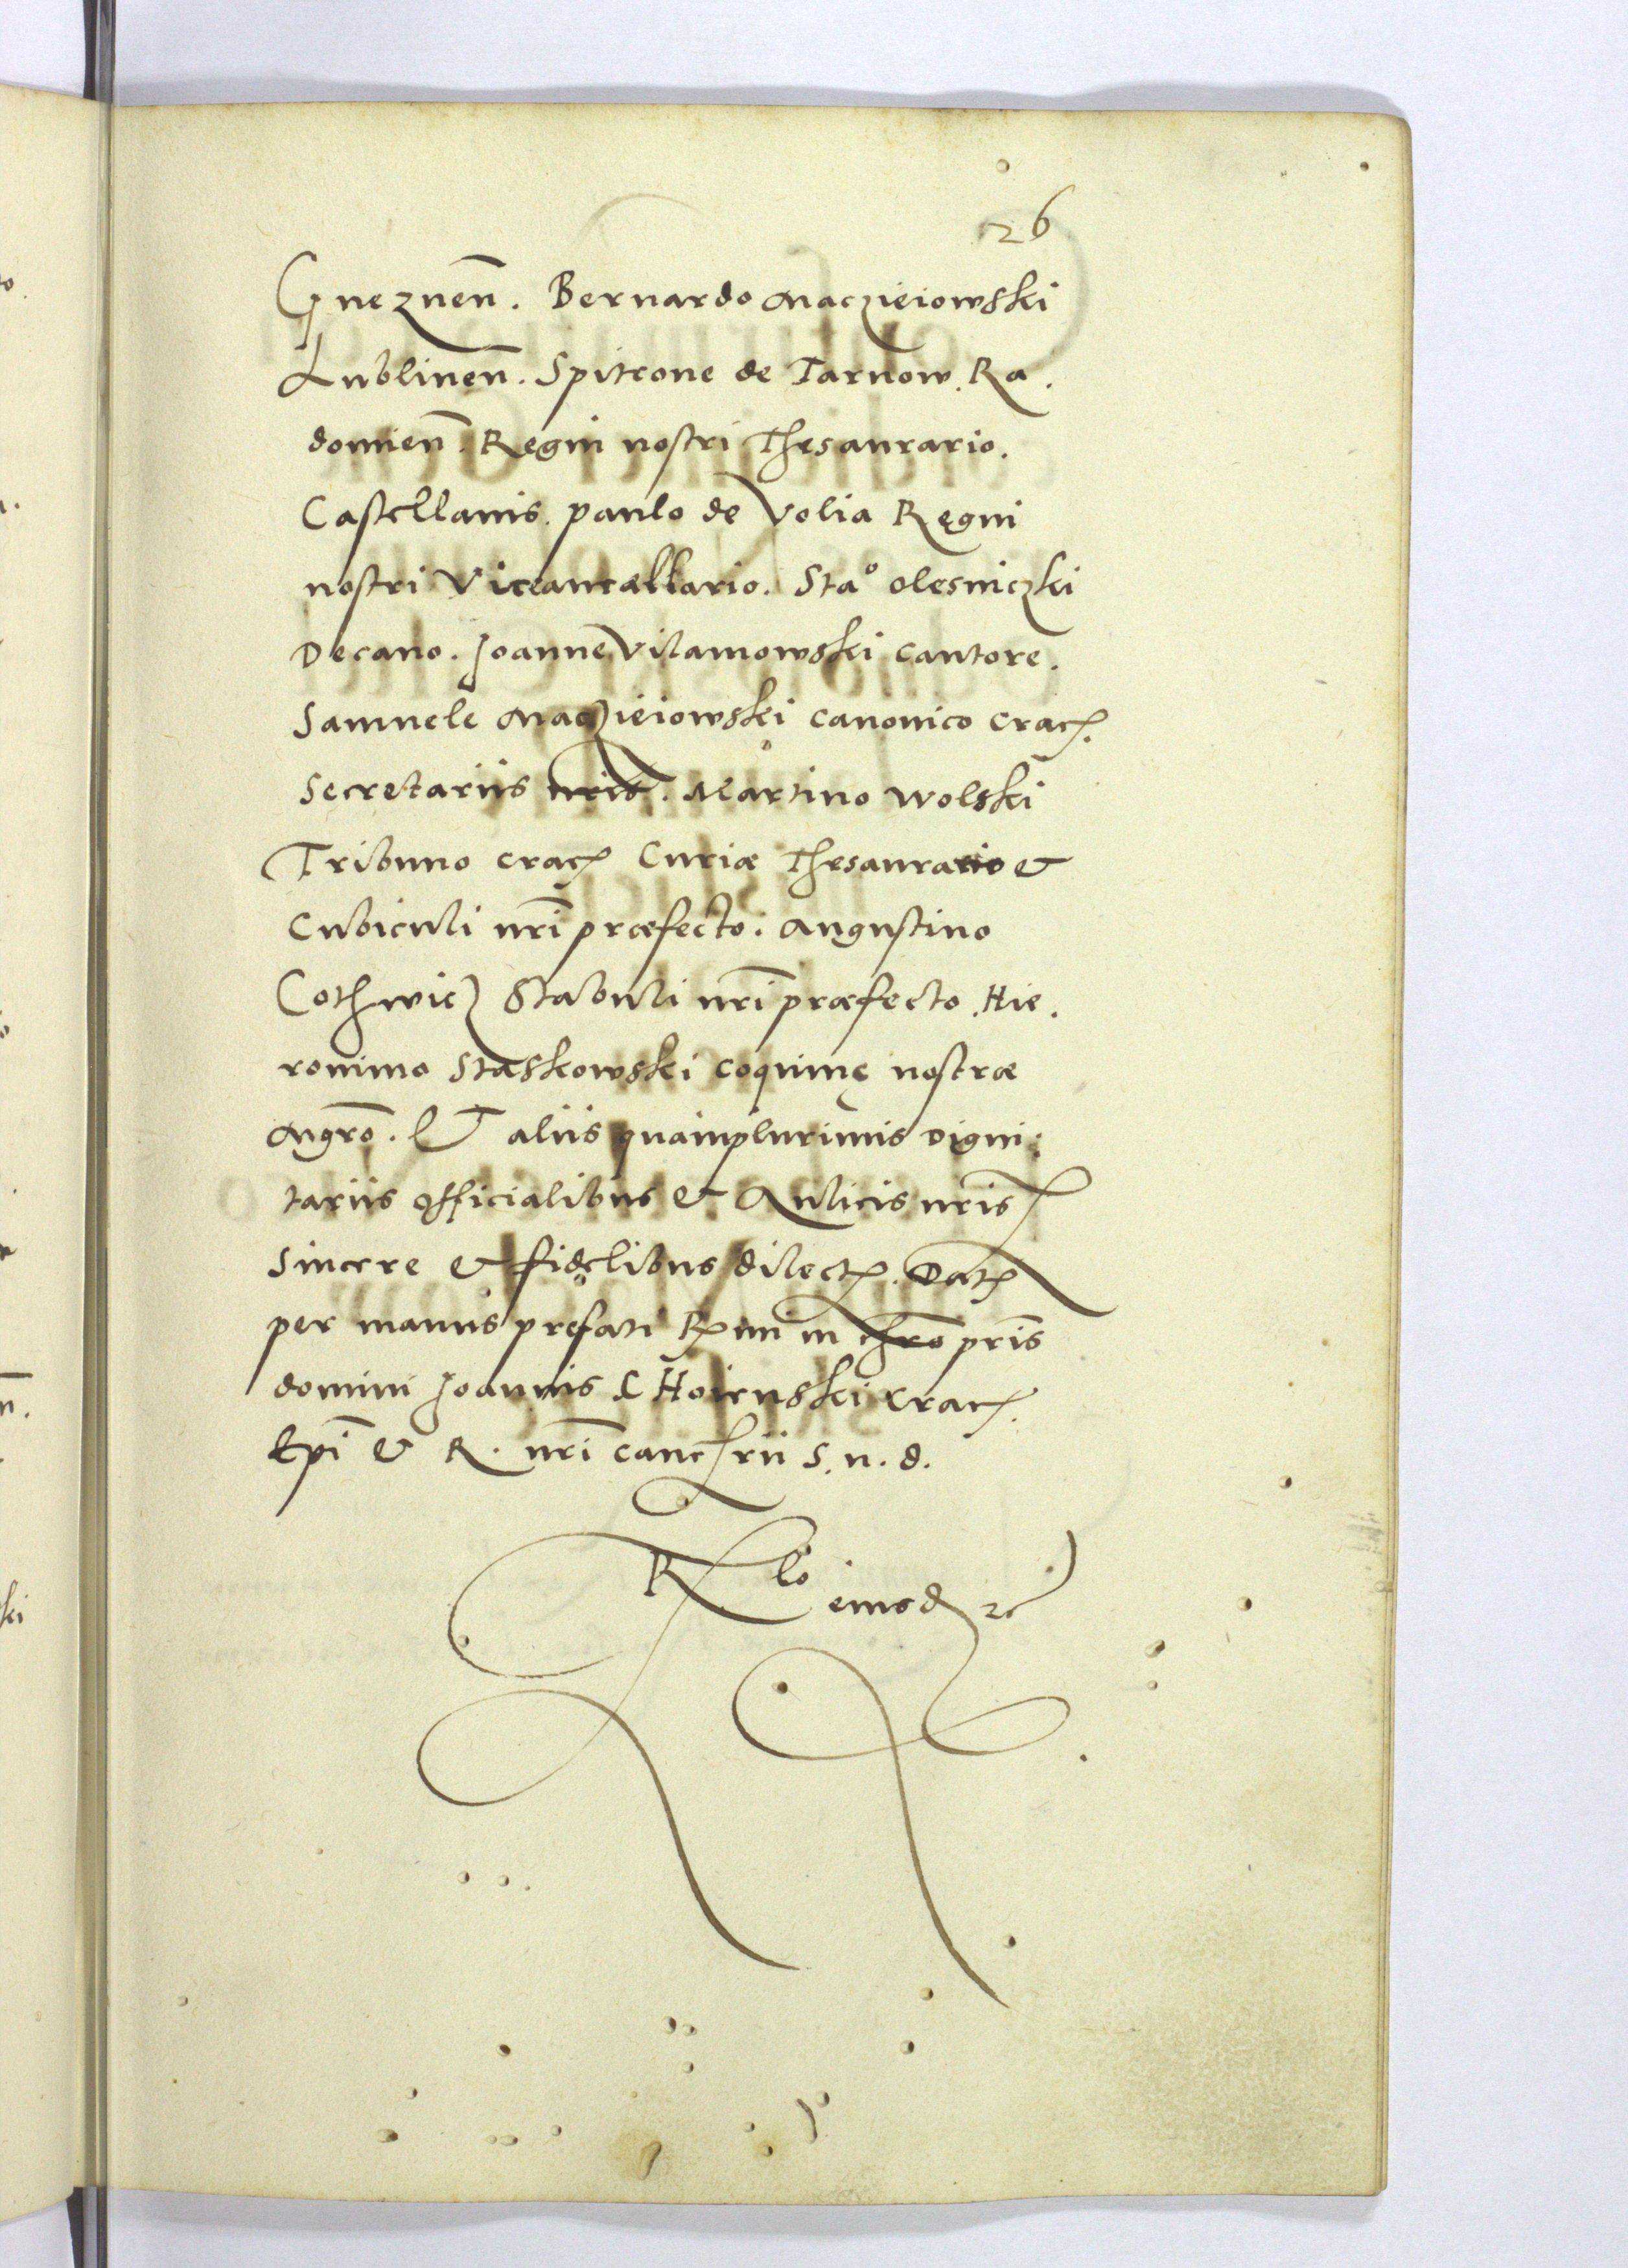 26
Gneznen̄. Bernardo Maczieiowski
Lublinen̄. Spitcone de Tarnow. Ra.
domien̄. Regni nostri Thesaurario.
Castellanis. paulo de Volia Ręgni
nostri Vicecancællario. Sta° olesniczki
Decano. Joanne Vilamowski cantore.
Samuele Maczieiowski canonico crac.
Secretariis nris. Martino Wolski
Tribuno crac Curiæ Thesaurario &
Cubiculi nr̄i præfecto. Augustino
Cothwicz Stabuli nr̄i præfecto. Hie.
ronimo Staskowski coquinę nostræ
Mgrō. Et aliis quamplurimis Digni:
tariis officialibus & Aulicis nris
Sincere & fidelibus dilect. Dat
per manus pręfati R mi in chrō pris
domini Joannis C Hoienski Crac.
Epi & R. nr̄i canc rii S. n. d.
R lō eiusd